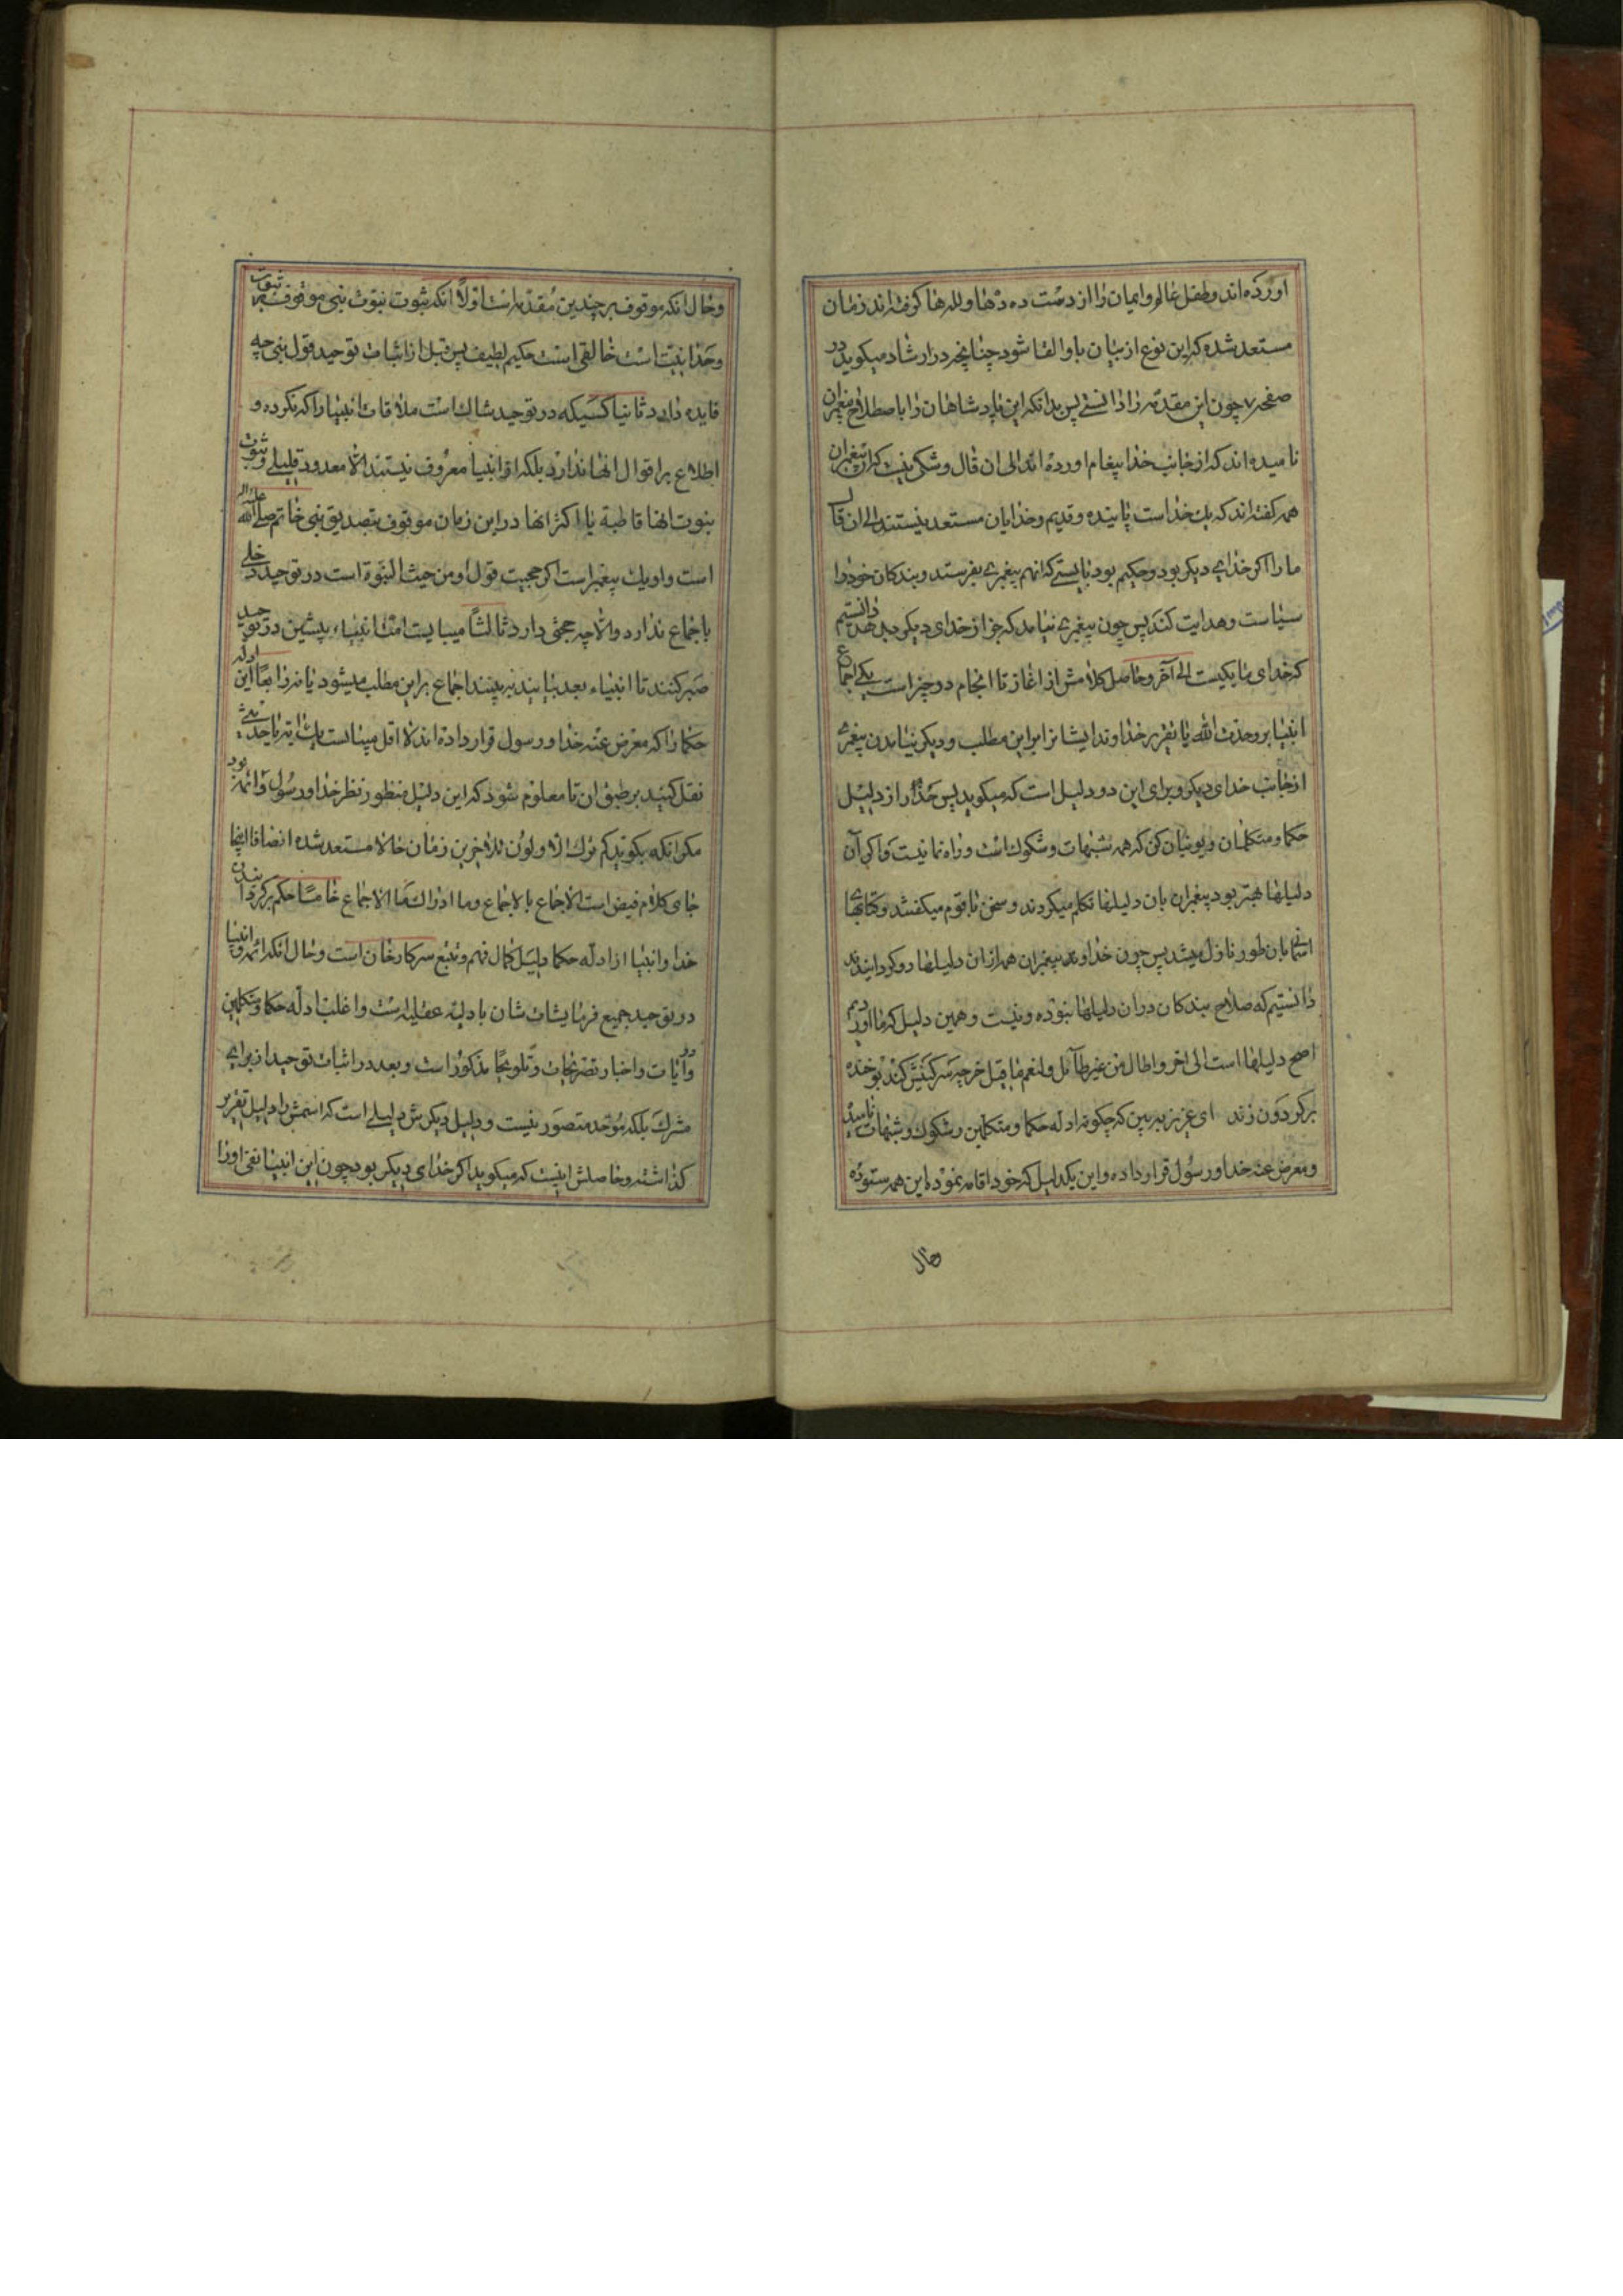 آورده‌اند و طفل عالم و ایمان را از دست ده دهها و لله‌ها گرفته‌اند زمان
مستعد شده که این نوع از بیان باو القا شود چنانچه در ارشاد میگوید در
صفحه ۷ چون این مقدمه را دانستی پس بدانکه این پادشاهان را باصطلاح پیغمبران
نامیده‌اند که از جانب خدا پیغام آورده‌اند الی ان قال و شکی نیست که این پیغمبران
همه گفته‌اند که یک خداست پاینده و قدیم و خدایان مستعد نیستند الی ان قال
ما را اگر خدای دیگر بود و حکیم بود بایستی که انهم پیغمبری بفرستد و بندگان خود را
سیاست و هدایت کند پس چون پیغمبری نیامد که جز از خدای دیگر دانستیم
که خدای ما یکیست الی آخر و حاصل کلامش از اغاز تا انجام دو چیز است یکی اجماع
انبیا بر وحدت الله یا تقریر خداوند ایشانرا بر این مطلب و دیگر نیامدن پیغمبری
از جانب خدای دیگر و برای این دو دلیل است که میگوید پس حذار از دلیل
حکما و متکلمان و یونیان کن که همه شبهات و شکوک است و راه نما نیست و اگر آن
دلیلها بهتر بود پیغمبران بان دلیلها تکلم میکردند و سخن با قوم میگفتند و کتابهای
اسمانی بان طور نازل میشد پس چون خداوند و پیغمبران همه از ان دلیلها رو گردانیدند
دانستیم که صلاح بندکان در ان دلیلها نبوده و نیست و همین دلیل که ما اوردیم
اصح دلیلها است الی اخر و اطال من غیر طائل و لنعم ما قیل خر چه سرگینش کند بو خنده
بر گردون زند ای عزیز ببین که چگونه ادله حکما و متکلمین و شکوک و شبهات نامید
و معرض عنه خدا و رسول قرار داده و این یکدلیل که خود اقامه نموده این همه ستوده
حال
و حال انکه موقوف بر چندین مقدمه است اولاً انکه ثبوت نبوت نبی موقوف بر ثبوت
وحدانیت است خالقی است حکیم لطیف پس قبل از اثبات توحید قول نبی چه
فایده دارد ثانیا کسیکه در توحید شاک است ملاقات انبیا را که نکرده و
اطلاع بر اقوال انها ندارد بلکه اقوا انبیا معروف نیستند الا معدود قلیلی و ثبوت
نبوت انها قاطبة یا اکثر انها در این زمان موقوف بتصدیق نبی خاتم صلی الله علیه واله
است و او یک پیغمبر است اگر حجیت قول او من حیث النبوة است در توحید دخلی
باجماع ندارد و الا چه حجتی دارد ثالثاً میبایست امت انبیاء پیشین در توحید
صبر کنند تا انبیاء بعد بیایند به بینند اجماع بر این مطلب میشود یا نه رابعاً این ادله
حکما را که معرض عنه خدا و رسول قرار داده‌اند لا اقل میبایست یک آیه یا حدیثی
نقل کنید بر طبق ان تا معلوم شود که این دلیل منظور نظر خدا و رسول و ائمه بود
مگر انکه بگوئید کم ترک الاولون للآخرین زمان حالا مستعد شده انصافا اینجا
جای کلام فیض است الاجماع بالاجماع و ما ادراک ما الاجماع خامساً حکم بر گردانیدن
خدا و انبیا از ادله حکما دلیل کمال فهم و تتبع سرکار خان است و حال انکه ائمه و انبیا
در توحید جمیع فرمایشات شان بادلیه عقلیه است و اغلب ادله حکما و متکلمین
در آیات و اخبار تصریحات و تلویحا مذکور است و بعد در اثبات توحید از برای
مشرک بلکه موحد متصور نیست و دلیل دیگرش دلیلی است که اسمش را دلیل تقریر
گذاشته و حاصلش اینست که میگوید اگر خدای دیگر بود چون این انبیا نفی او را